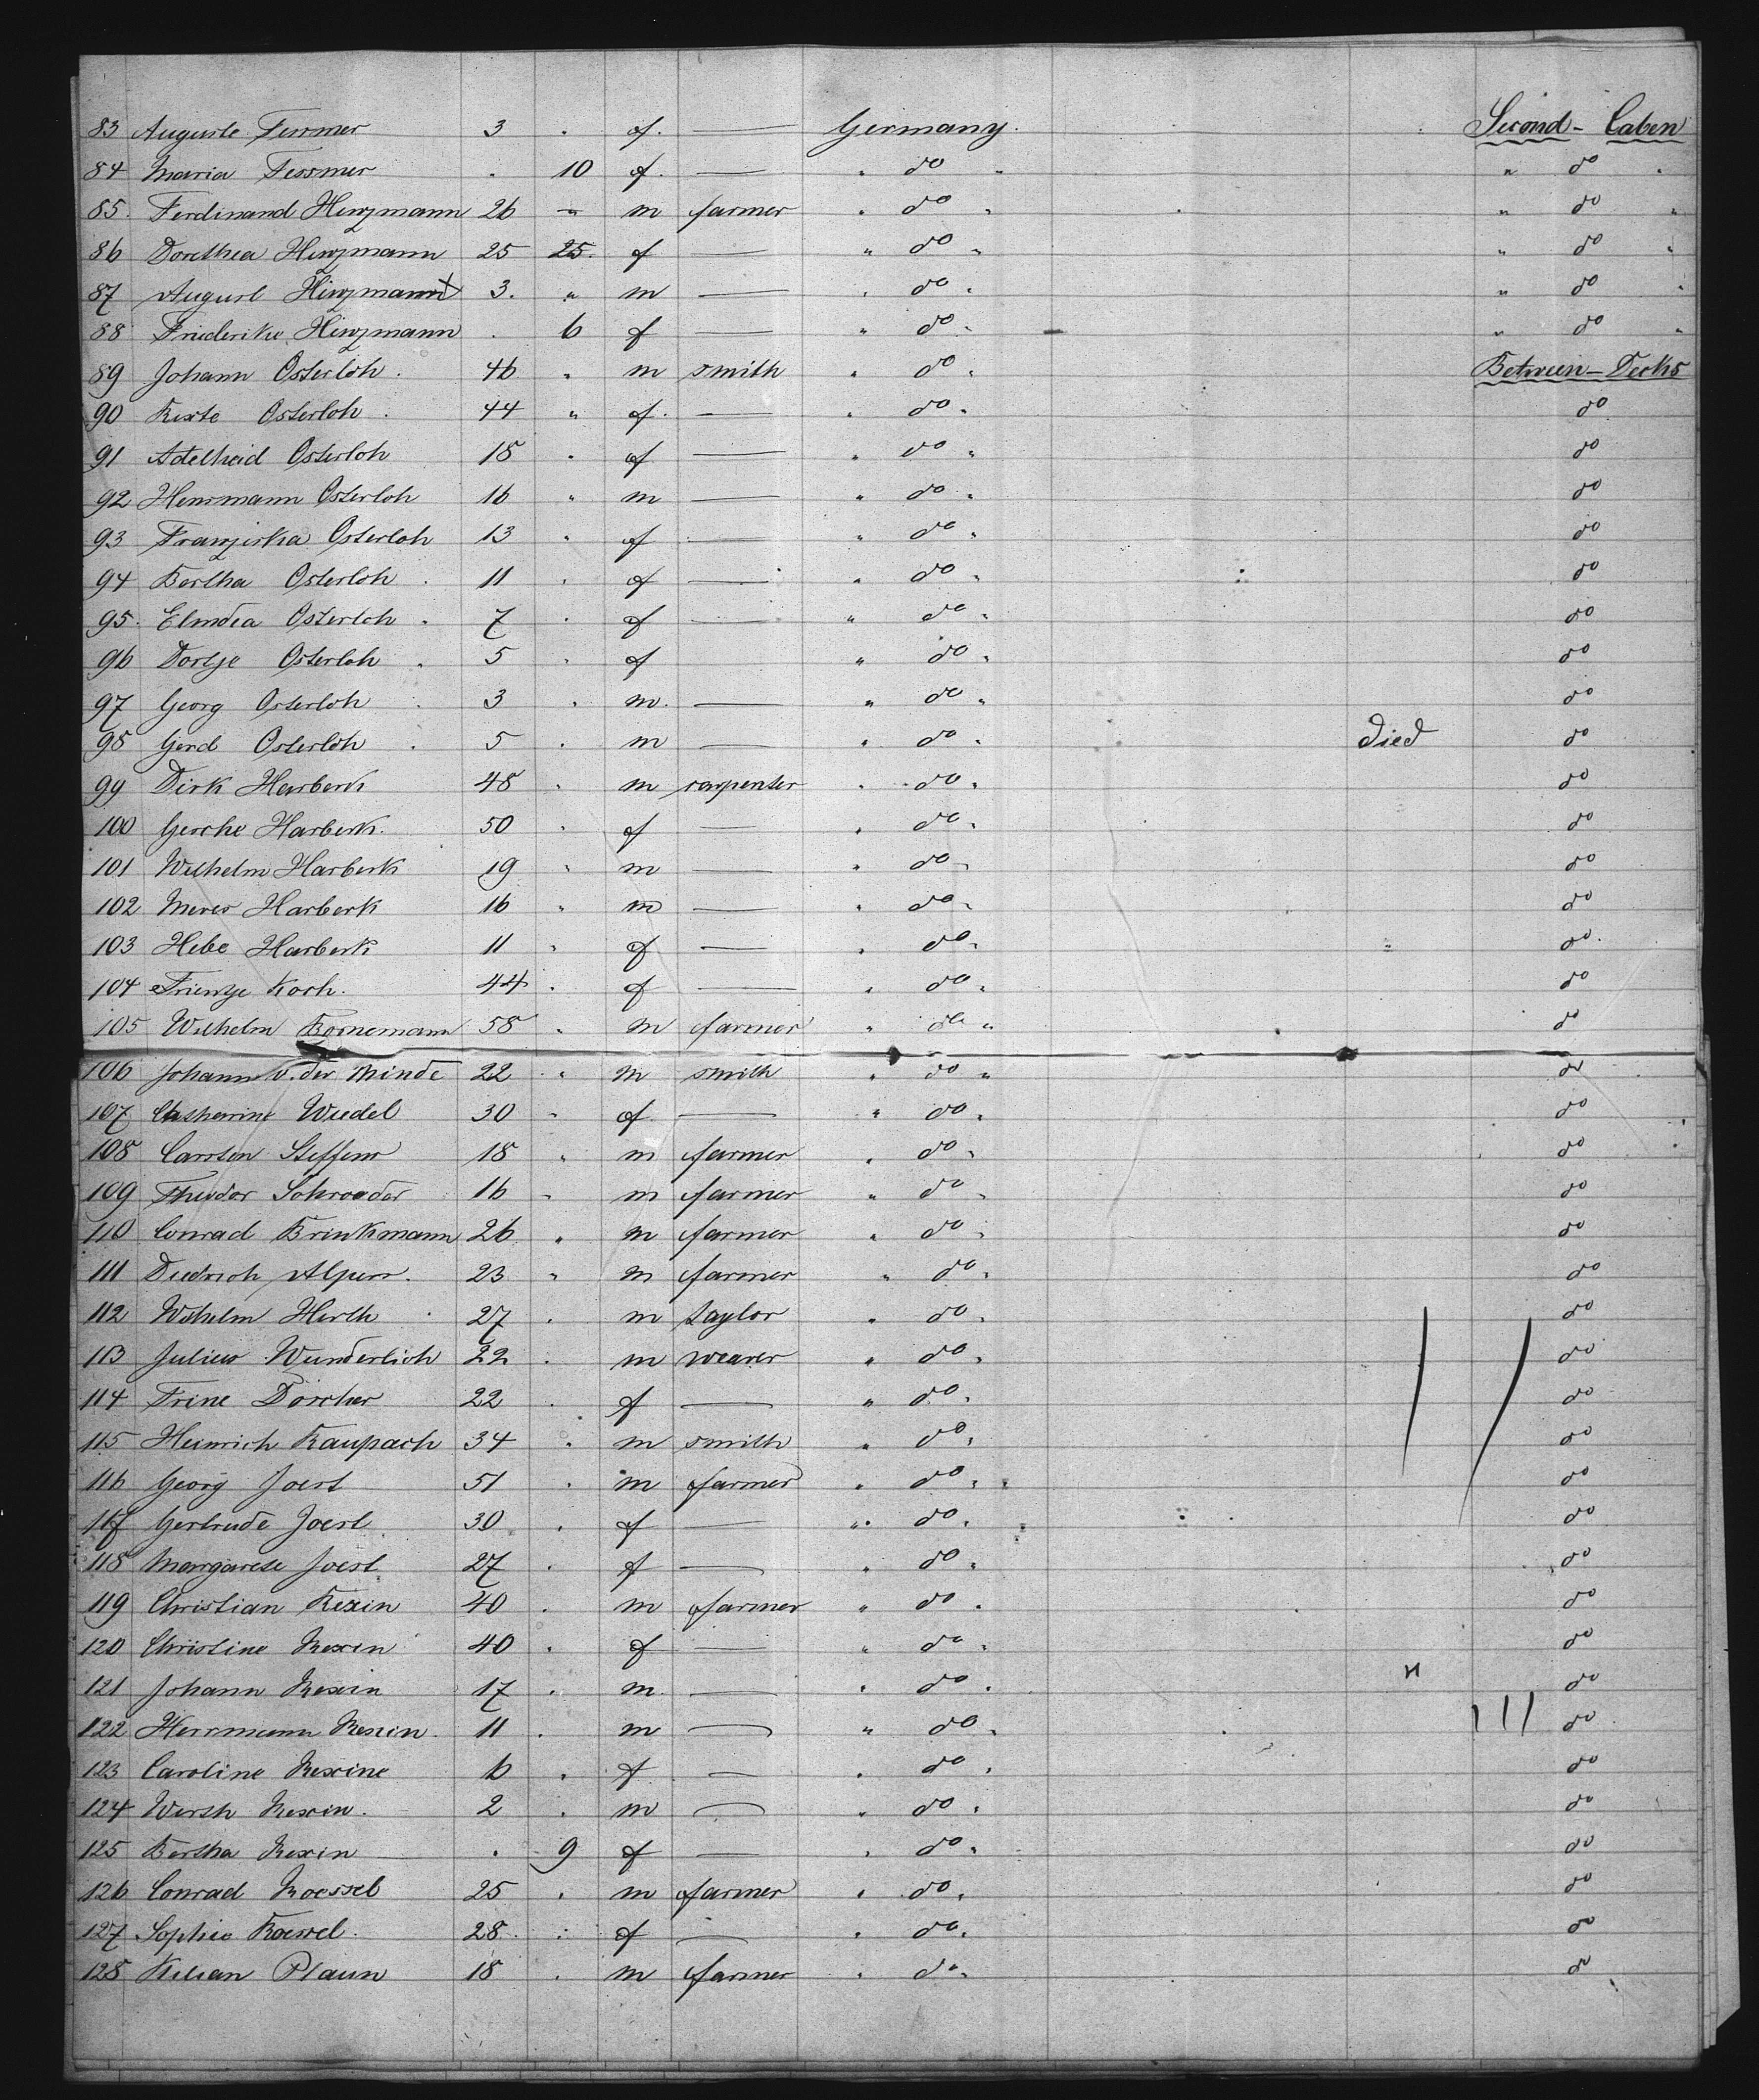 83 Auguste Fessmer 3 " f. — Germany. Second - Caben
84 Maria Fessmer " 10 f. — " do " " do "
85. Ferdinand Hinzmann 26 " m farmer " do " " do "
86 Dorethea Hinzmann 25 25. f — " do " " do "
87 August Hinzmann 3. " m — " do " " do "
88 Friederike Hinzmann . 6 f — " do " " do "
89 Johann Osterloh . 46 " m smith " do " Between - Decks
90 Rixte Osterloh . 44 " f. — " do " do
91 Adelheid Osterloh 18 " f — " do " do
92 Herrmann Osterloh 16 " m — " do " do
93 Franziska Osterloh 13 " f — " do " do
94 Bertha Osterloh . 11 " f — " do " do
95. Elmdea Osterloh . 7 " f — " do " do
96 Dortje Osterloh . 5 " f " do " do
97 Georg Osterloh 3 " m. — " do " do
98 Gerd Osterloh . 5 " m — " do " died do
99 Dirk Harberk 48 " m carpenter " do " do
100 Gesche Harberk. 50 " f — " do " do
101 Wilhelm Harberk 19 " m — " do " do
102 Harberk 16 " m — " do " do
103 Hebe Harberk 11 " f — " do " do.
104 Trientje Koch. 44 " f — " do " do
105 Wilhelm Bornemann 58 " m farmer " do " do
106 Johann v. der Minde 22 " m smith " do " do
107 Catherine Wiedel 30 " f — " do " do
108 Carsten Steffens 18 " m farmer " do " do
109 Theodor Schroeder 16 " m farmer " do " do
110 Conrad Brinkmann 26 " m farmer " do " do
111 Diedrich Alpers. 23 " m farmer " do " do
112 Wilhelm Herth 27 " m taylor " do " do
113 Julius Wunderlich 22 " m weaver " do " do
114 Trine Dörcher 22 " f — " do " do
115 Heinrich Raupach 34 " m smith " do " do
116 Georg Joest 51 " m farmer " do " do
117 Gertrude Joest 30 " f — " do " do
118 Margarete Joest 27 " f — " do " do
119 Christian Rexin 40 " m farmer " do " do
120 Christine Rexin 40 " f — " do " do
121 Johann Rexin 17 " m. — " do " do
122 Herrmann Rexin. 11 " m — " do " do
123 Caroline Rexine 6 " f — " do " do
124 Rexin. 2 " m — " do " do
125 Bertha Rexin " 9 f — " do " do
126 Conrad Roessel 25 " m farmer " do " do
127 Sophie Roessel. 28 " f — " do " do
128 Kilian Plaun 18 " m farmer " do " do